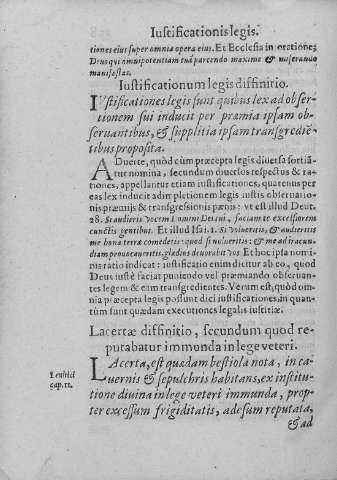 Iustificationis legis.
tiones eius super omnia opera eius. Et Ecclesia in oratione:
Deus qui omnipotentiam tuã parcendo maxime & miserando
manifestas.
Iustificationum legis diffinitio.
IVstificationes legis sunt quibus lex ad obser-
tionem sui inducit per præmia ipsam ob-
seruantibus, & supplitia ipsam transgrediẽ-
tibus proposita.
ADuerte, quòd cùm præcepta legis diuersa sortiã-
tur nomina, secundum diuersos respectus & ra-
tiones, appellantur etiam iustificationes, quatenus per
eas lex inducit ad impletionem legis iustis obseruatio-
nis præmijs & transgressionis pœnis: vt est illud Deut.
28. Si audieris vocem Domini Dei tui, faciam te excelsiorem
cunctis gentibus. Et illud Isai. 1. Si volueritis, & audieritis
me bona terræ comedetis: quod si nolueritis: & me ad iracun-
diam prouocaueritis, gladius deuorabit vos. Et hoc ipsa nomi-
nis ratio indicat: iustificatio enim dicitur ab eo, quod
Deus iustè faciat puniendo vel præmiando obseruan-
tes legem & eam transgredientes. Verum est, quòd om-
nia præcepta legis possunt dici iustificationes, in quan-
tùm sunt quædam executiones legalis iustitiæ.
Lacertæ diffinitio, secundum quod re-
putabatur immunda in lege veteri.
LAcerta, est quædam bestiola nota, in ca-
Leuitici
cap. 11.
uernis & sepulchris habitans, ex institu-
tione diuina in lege veteri immunda, prop-
ter excessum frigiditatis, adesum reputata,
& ad